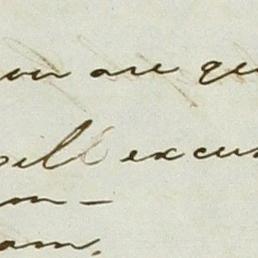 you are ge
will excus
m -
am,